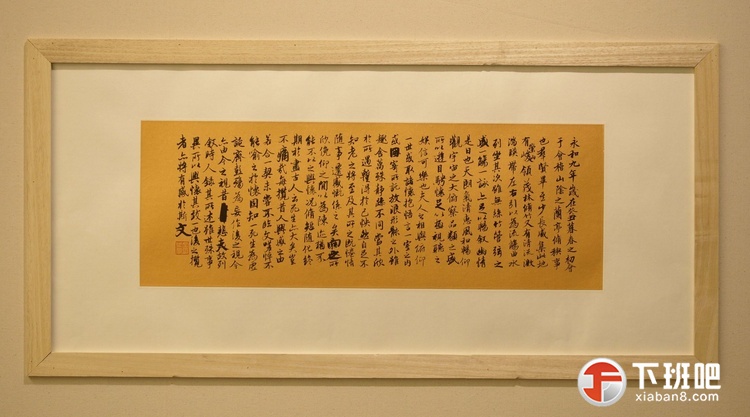 永和九年歲在癸丑暮春之初會
于會稽山陰之蘭亭脩稧事
也群賢畢至少長咸集此地
有峻領茂林脩竹又有清流激
湍暎帶左右引以為流觴曲水
列坐其次雖無絲竹管弦之
盛一觴一詠亦足以暢敘幽情
是日也天朗氣清惠風和暢仰
觀宇宙之大俯察品類之盛
所以遊目騁懷足以極視聽之
娛信可樂也夫人之相與俯仰
一世或取諸懷抱悟言一室之內
或因寄所託放浪形骸之外雖
趣舍萬殊靜躁不同當其欣
於所遇暫得於己快然自足不
知老之將至及其所之既惓情
隨事遷感慨係之矣向之所
欣俛仰之閒以為陳跡猶不
能不以之興懷況脩短隨化終
期於盡古人云死生亦大矣豈
不痛哉每攬昔人興感之由
若合一契未嘗不臨文嗟悼不
能喻之於懷固知一死生為虛
誕齊彭殤為妄作後之視今
亦由今之視昔悲夫故列
敘時人錄其所述雖世殊事
異所以興懷其致一也後之攬
者亦將有感於斯文
下班吧
xiaban8.com